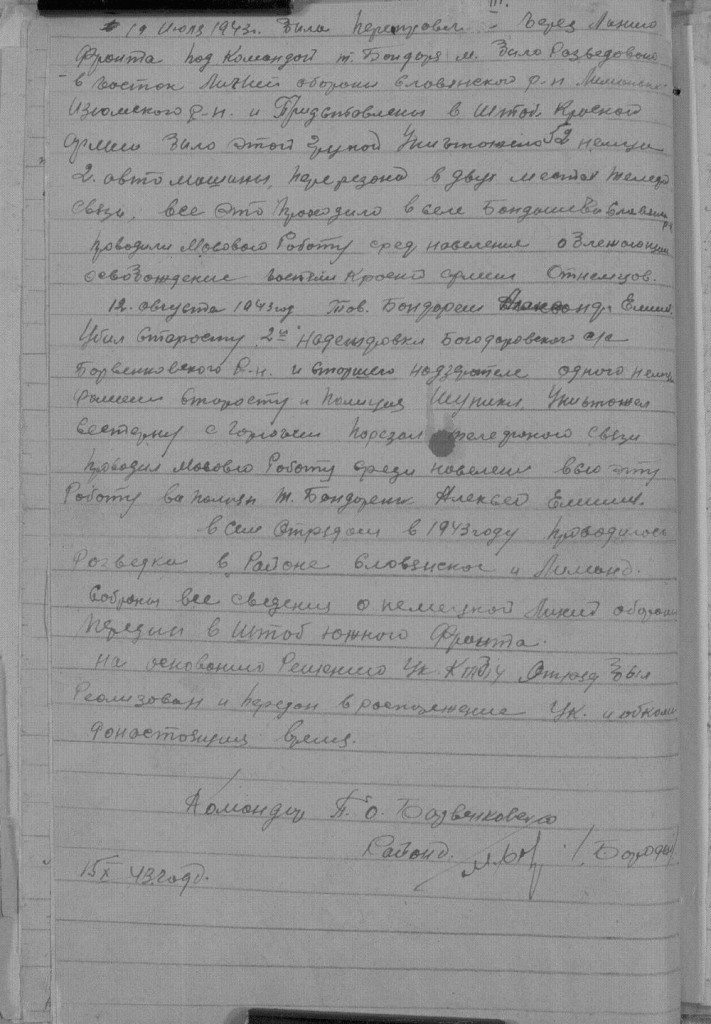 19 Июля 1943г. Била переправл через Линию
фронта под командой т. Бондаря м. Било Разведовано
в восток Линий обороны Словянского р-н. Лиманско
Изюмского р-н. и Придставлены в Штоб. Красной
Армии Било этой групой Уништожено 52 немца
2. автомашины, перерезана в двух местах телеф
Связи, все это проходило в селе Бондашеви Славян
проводили Мосового Роботу сред населения о
освобождение частями Красной армии Отнемцов.
12. августа 1943 год Тов. Бондарем Емил.
Убил Старосту 2й Надеждовка Богодаровского с/с
Борвенковского Р-н. и старшего надзрателе одного немца
фамили Старосту и полицая Шупика, Уништожел
вестерну с Горючем порезал телефоного связи
проводил Мосовою Роботу среди населения выю эту
Роботу ва полнял Т. Бондаренк Алексей Емилия.
всем Отрядом в 1943 году проводилось
Розведка в Районе Словянског и Лиманд.
Собраны все сведения о немецкой Линий обороны
передин в Штоб южного Фронта.
на основанию Решению Цк. КП(б)У Отряд Збыл
Реализован и передан в распоряжение Цк. и обкома
донастоящия время.
Командир П. о. Барвенковского
Района.
15 X 43 годр.